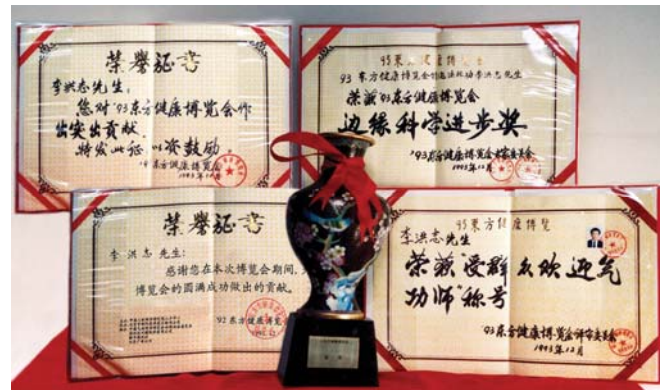 荣誉证书
李洪志先生:
您对'93东方健康博览会作
出突出贡献.
特发此证,以资鼓励.
'93东方健康博览会
1993年12月
93东方健康博览会
李洪志先生
荣获'93东方健康博览会
边缘科学进步奖
'93东方健康博览会评审委员会
1993年12月
荣誉证书
李洪志 先生:
感谢您在本次博览会期间,
博览会的圆满成功做出的贡献.
92东方健康博览会
93东方健康博览
李洪志先生
荣获"受群众欢迎气
功师"称号
'93东方健康博览会评审委员会
1993年12月